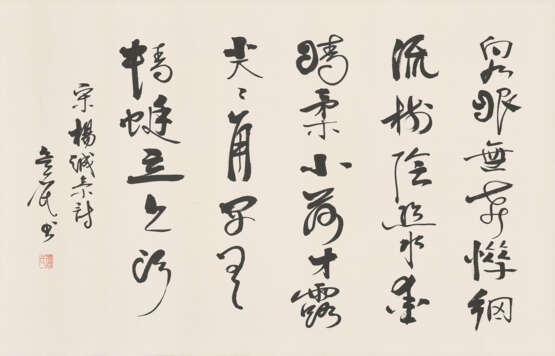 泉眼無聲憐細
流樹陰照水愛
晴柔小荷才露
尖〻角早有
蜻蜓立上頭
宋楊誠齋詩
書